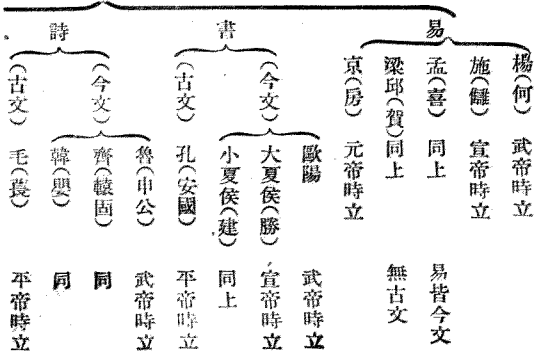 易
楊(何) 武帝時立
施(讎) 宣帝時立
孟(喜) 同上 易皆今文
梁邱(賀) 同上 無古文
京(房) 元帝時立
書
(今文)
歐陽 武帝時立
大夏侯(勝) 宣帝時立
小夏侯(建) 同上
(古文)
孔(安國) 平帝時立
詩
(今文)
魯(申公) 武帝時立
齊(轅固) 同
韓(嬰) 同
(古文)
毛(萇) 平帝時立